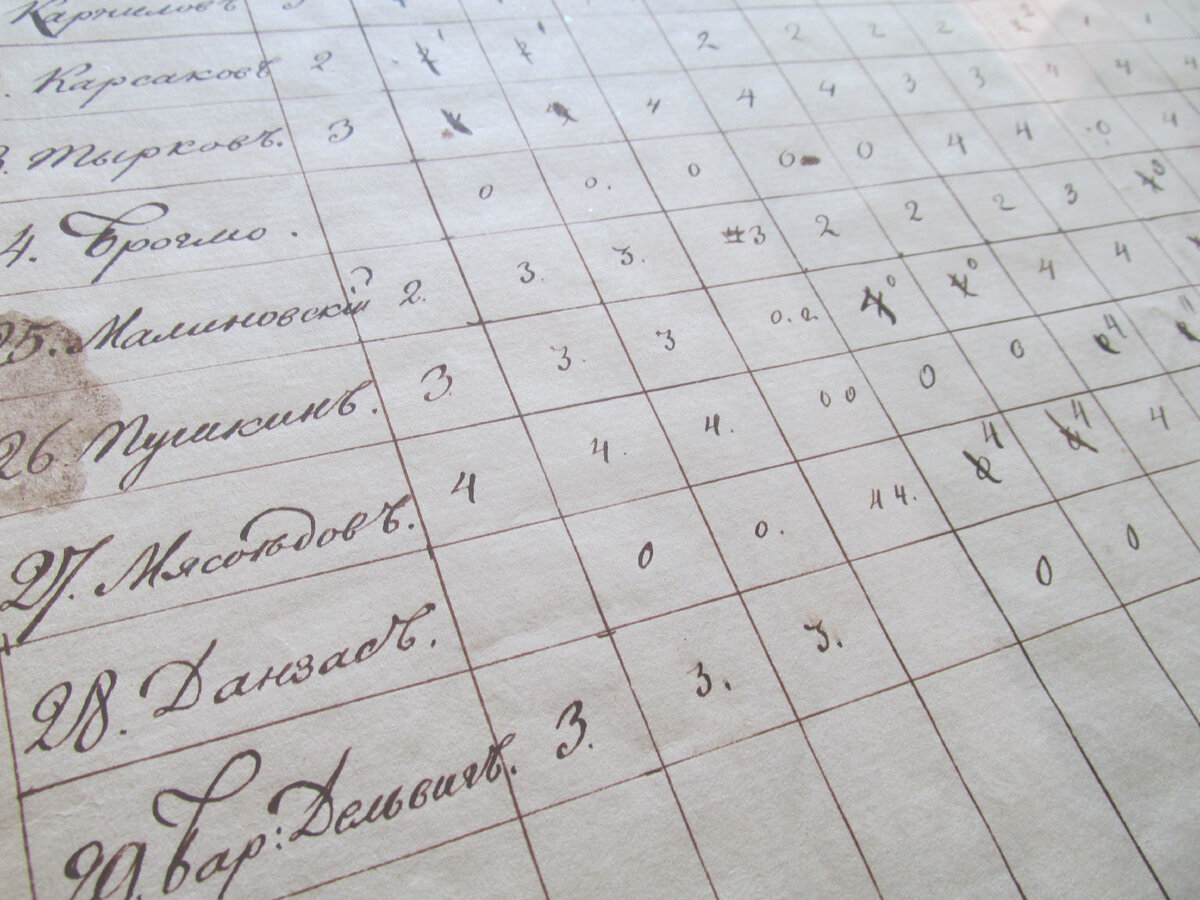 Карниловъ 3
. Карсаковъ 2 1 1 2 2 2 2 2 1 1
3. Тырковъ. 3 4 4 4 3 3 4 4 4
4. Брогліо. 0 0. 0 0 0 4 4 0 4
25. Малиновскій 2. 3. 3. 3 2 2 2 3 0
26 Пушкинъ. 3. 3. 3 0.2. 4 0 4 0 4 4
27. Мясоѣдовъ. 4 4. 4. 00 0 0 4 4
28. Данзасъ. 0 0. 44. 4 4 4
29. Бар: Дельвигъ. 3. 3. 3. 0 0